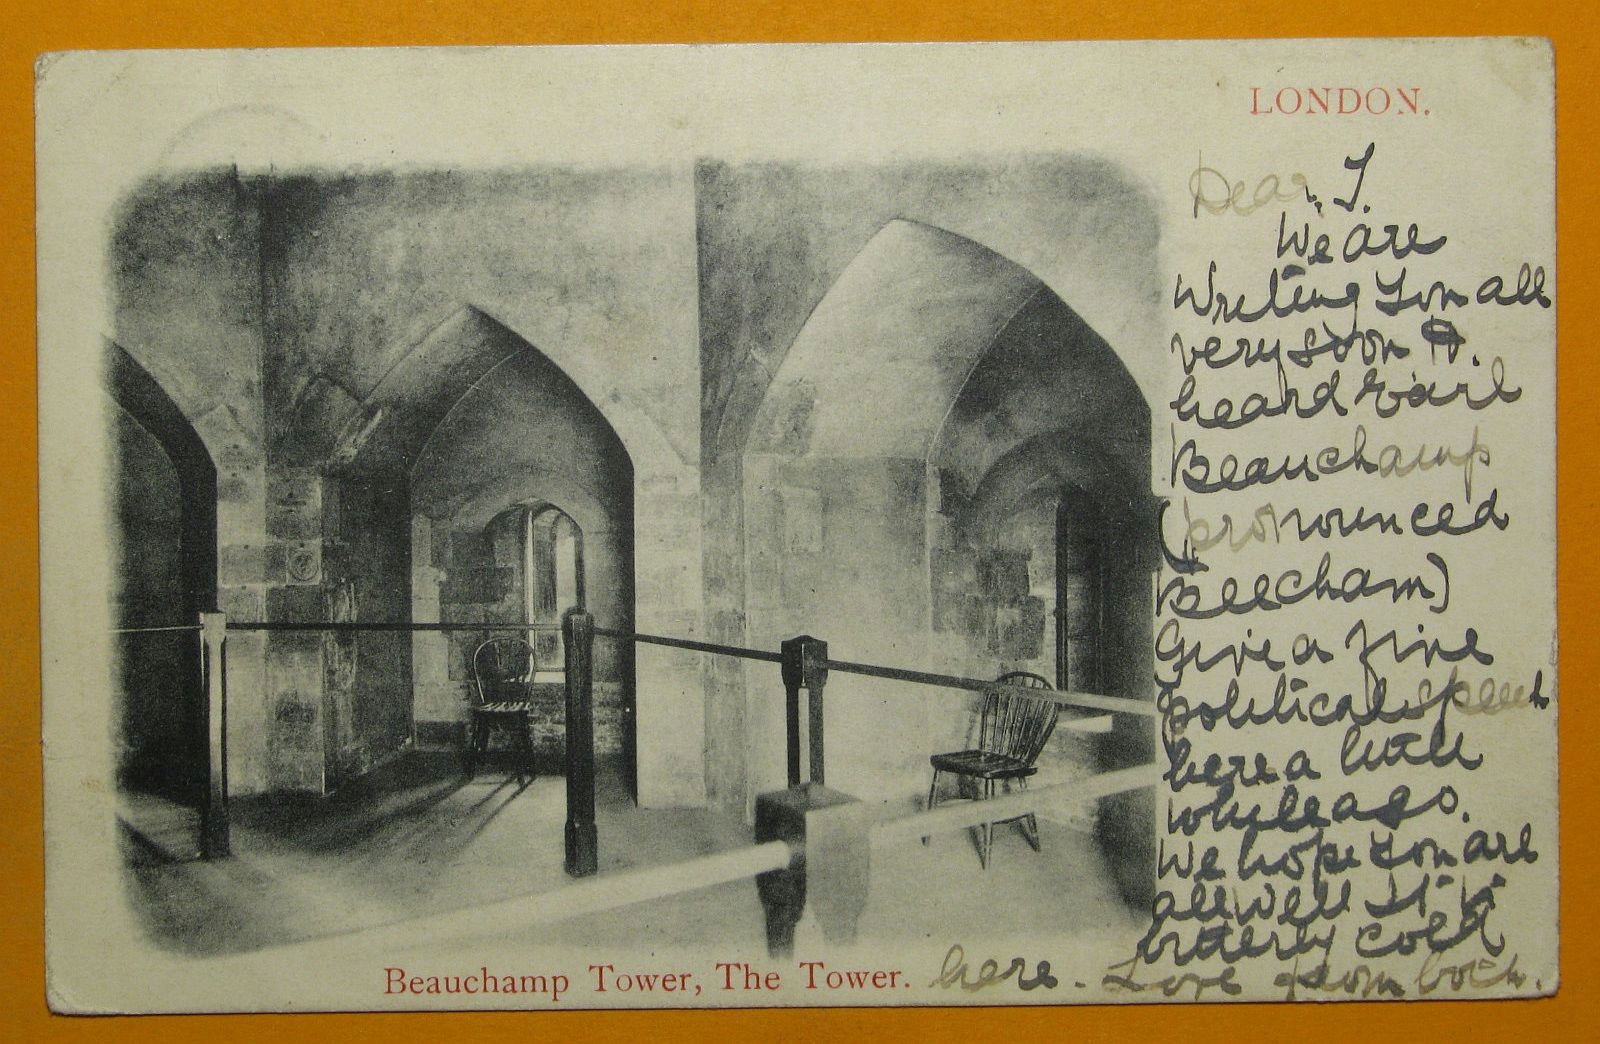 LONDON.
Dear J.
We are
Writing you all
very soon
heard Earl
Beauchamp
(pronounced
Beecham)
Give a fine
political speech
here a little
while ago.
We hope you are
all well It is
bitterly cold
here. Love from both.
Beauchamp Tower, The Tower.